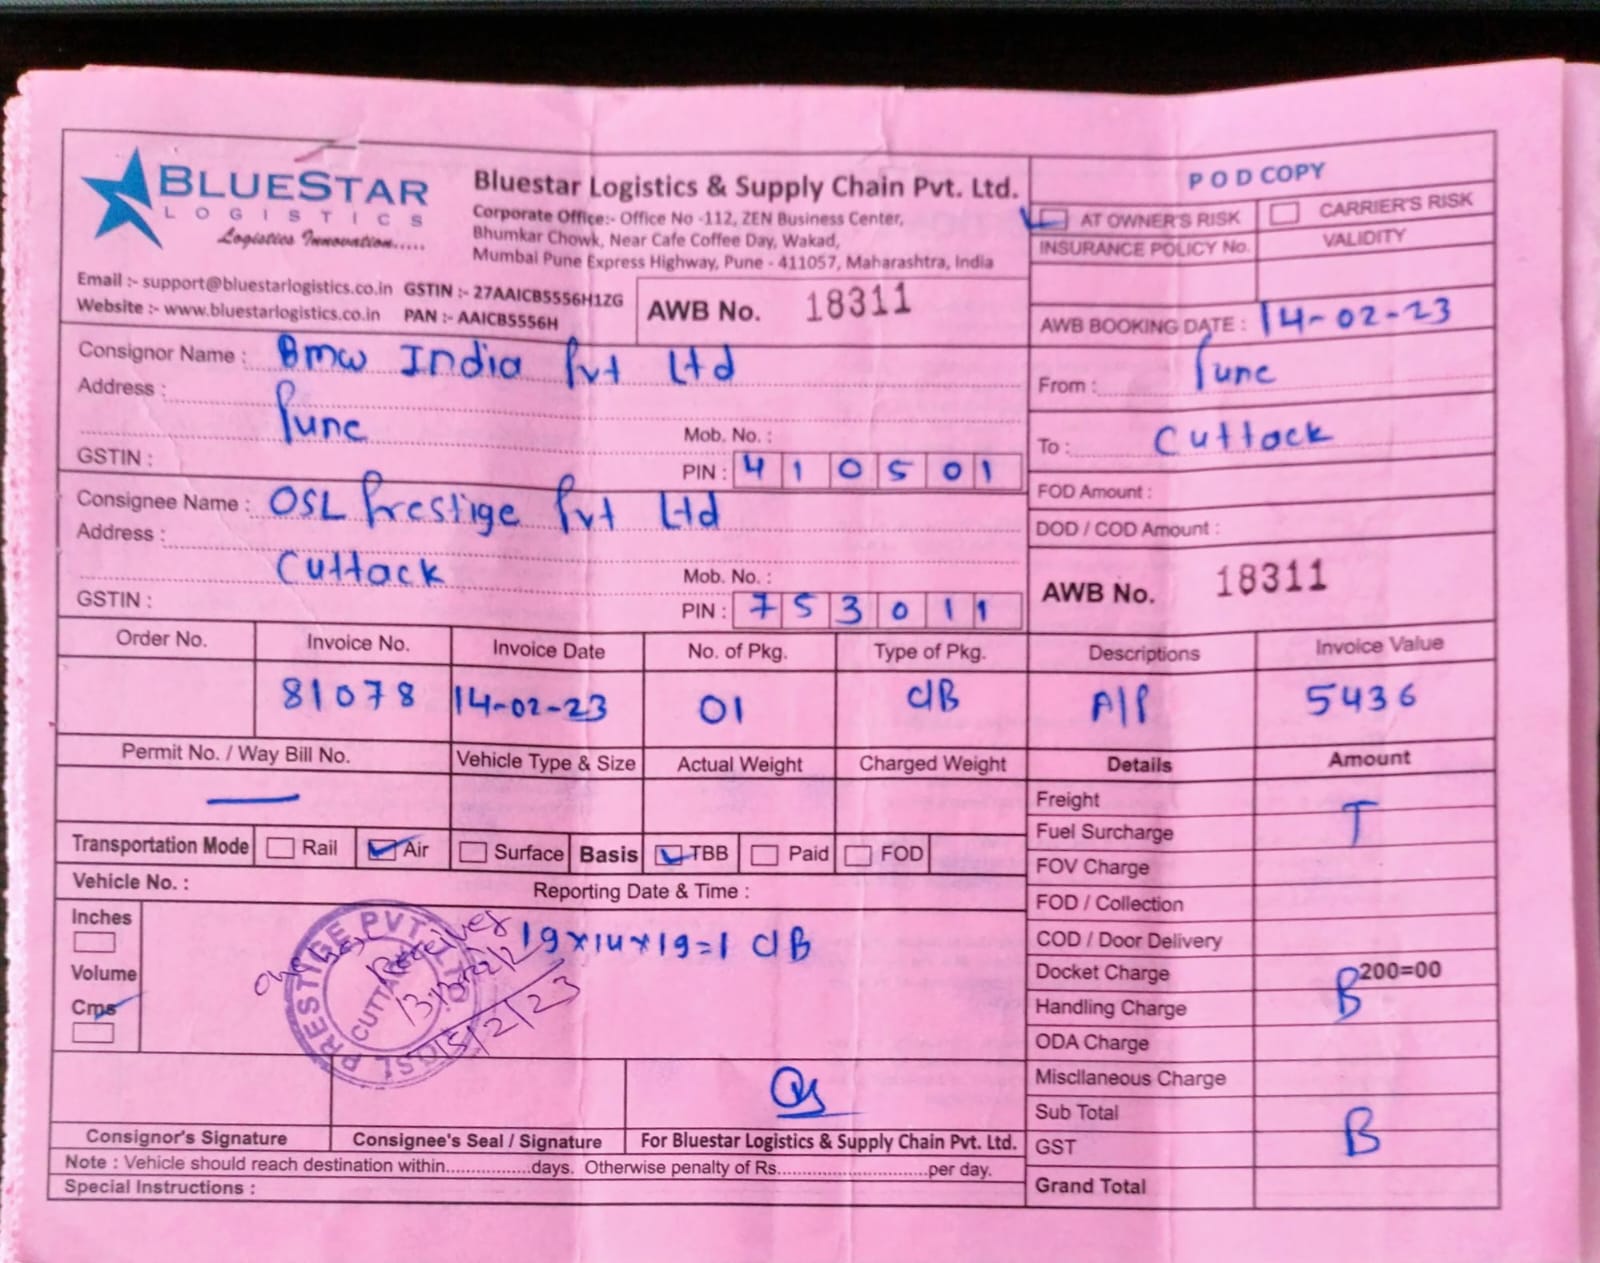 BLUESTAR
LOGISTICS
Logistics Innovation.....
Bluestar Logistics & Supply Chain Pvt. Ltd.
Corporate Office:- Office No -112, ZEN Business Center,
Bhumkar Chowk, Near Cafe Coffee Day, Wakad,
Mumbai Pune Express Highway, Pune - 411057, Maharashtra, India
Email :- support@bluestarlogistics.co.in GSTIN :- 27AAICB5556H1ZG
Website :- www.bluestarlogistics.co.in PAN :- AAICB5556H
AWB No. 18311
POD COPY
AT OWNER'S RISK CARRIER'S RISK
INSURANCE POLICY No. VALIDITY
AWB BOOKING DATE : 14-02-23
From : Pune
To : Cuttack
FOD Amount :
DOD / COD Amount :
AWB No. 18311
Consignor Name : Bmw India Pvt Ltd
Address :
Pune
Mob. No. :
GSTIN : PIN : 410501
Consignee Name : OSL Prestige Pvt Ltd
Address :
Cuttack
Mob. No. :
GSTIN : PIN : 753011
Order No. Invoice No. Invoice Date No. of Pkg. Type of Pkg. Descriptions Invoice Value
81078 14-02-23 01 C/B A/P 5436
Permit No. / Way Bill No. Vehicle Type & Size Actual Weight Charged Weight Details Amount
—
Freight
Fuel Surcharge T
FOV Charge
FOD / Collection
COD / Door Delivery
Docket Charge 200=00
Handling Charge B
ODA Charge
Miscllaneous Charge
Sub Total
GST B
Grand Total
Transportation Mode Rail Air Surface Basis TBB Paid FOD
Vehicle No. : Reporting Date & Time :
Inches
Volume
Cms
19x14x19=1 C/B
Received
15/2/23
PRESTIGE PVT. LTD. OSL
CUTTA
Consignor's Signature Consignee's Seal / Signature For Bluestar Logistics & Supply Chain Pvt. Ltd.
Note : Vehicle should reach destination within.................days. Otherwise penalty of Rs..............................per day.
Special Instructions :